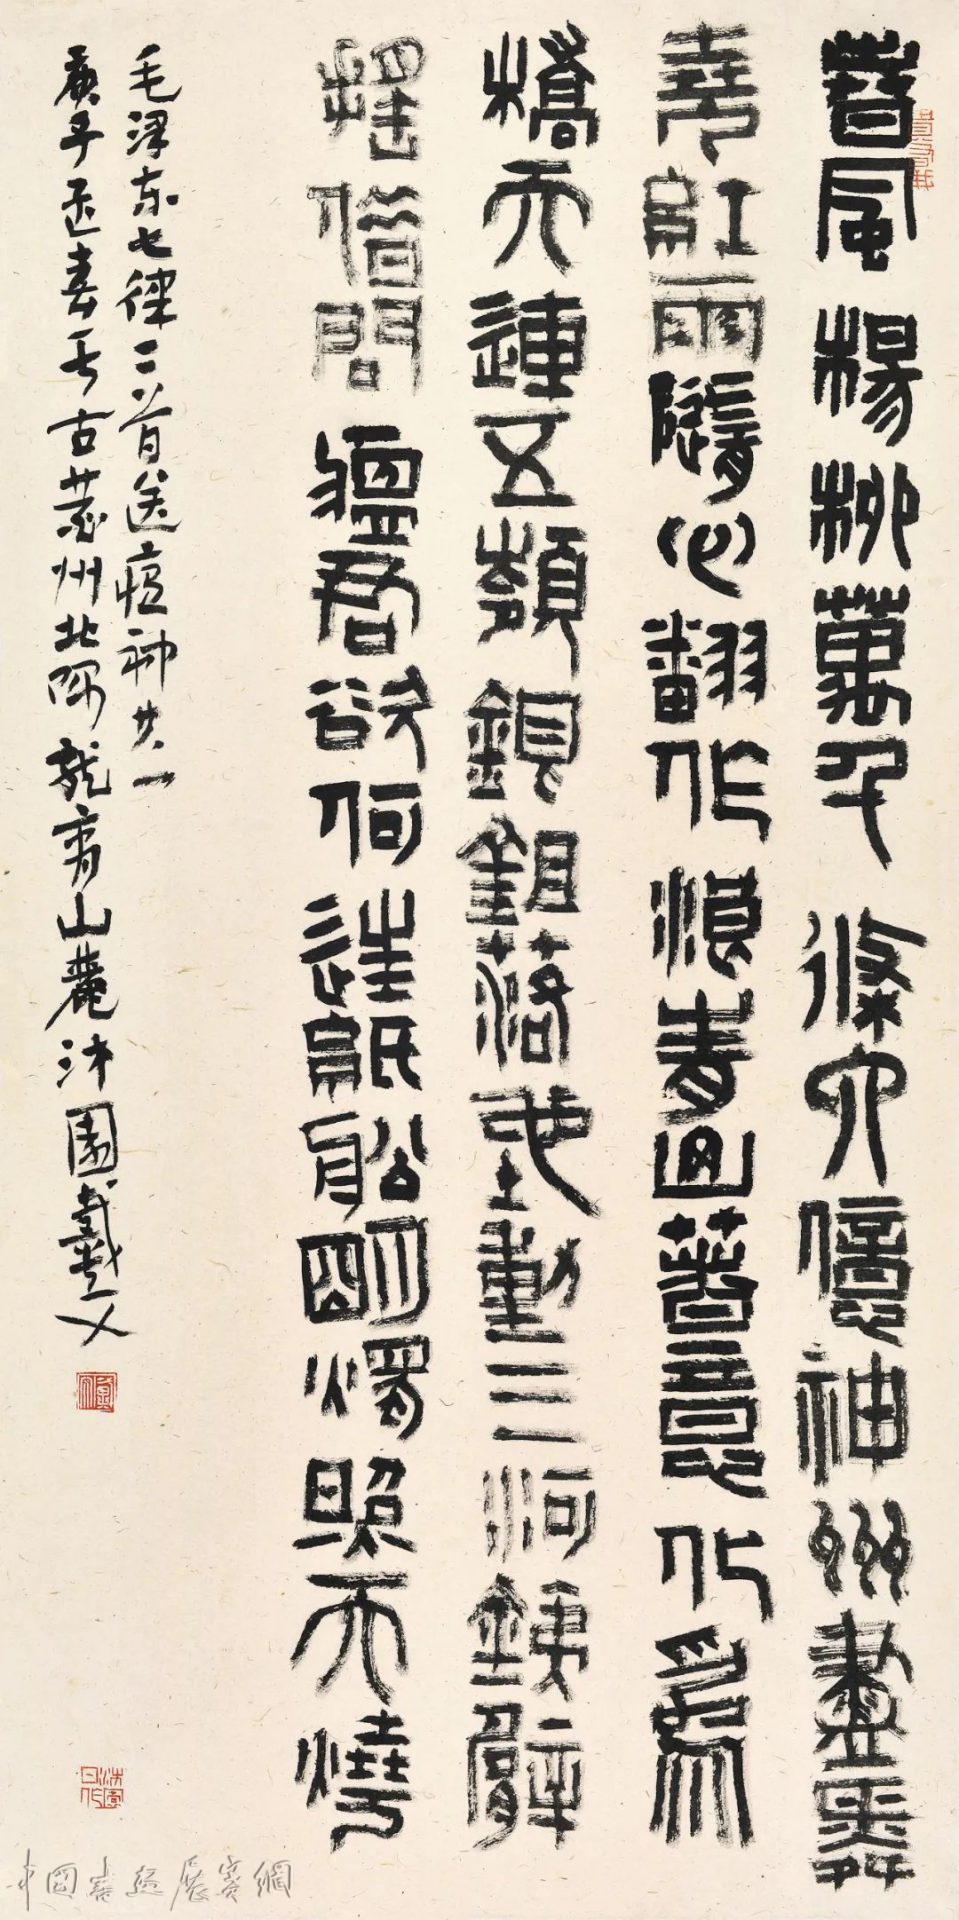 春風楊柳萬千條六億神州盡舜
堯紅雨隨心翻作浪青山著意化為
橋天連五嶺銀鋤落地動三河鐵臂
搖借問瘟君欲何往紙船明燭照天燒
毛澤東七律二首送瘟神其一
庚子孟春于古州北隅龍山麓沐園戴
中國書法展賽網